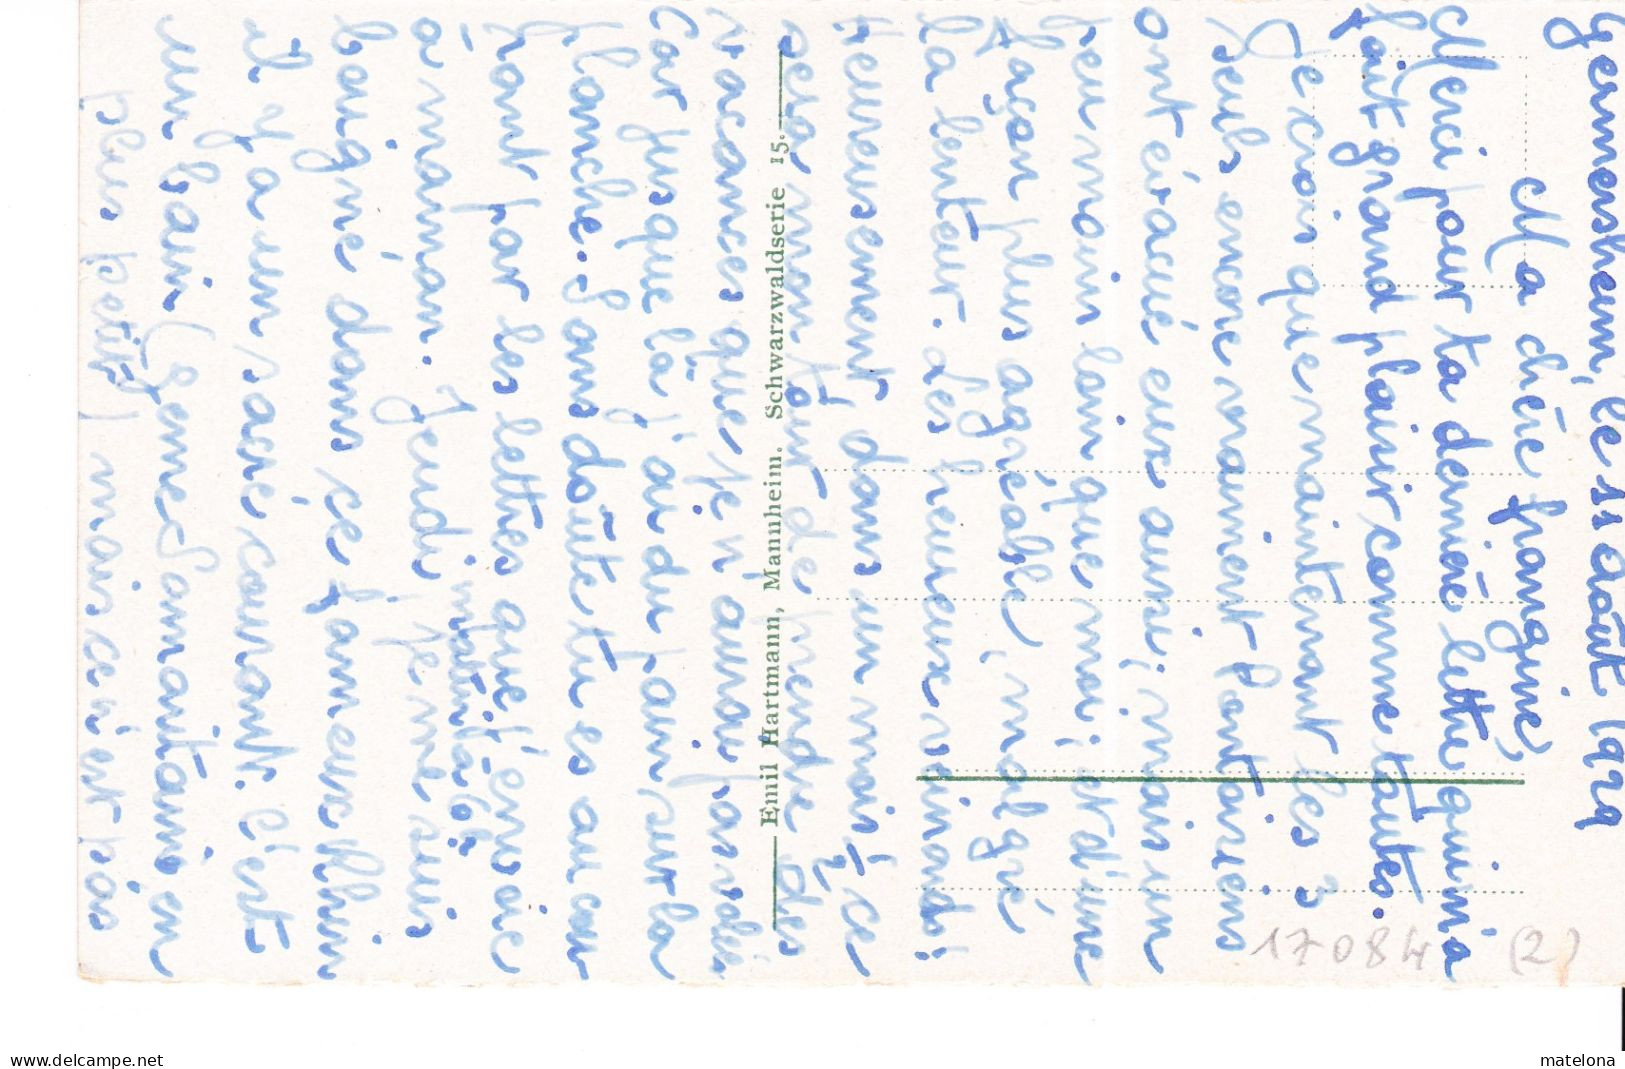 Germersheim, le 11 août 1929
Ma chère frangine,
Merci pour ta dernière lettre qui m'a
fait grand plaisir comme toutes.
Je crois que maintenant les 3
seuls encore vraiment Pontariens
ont évacué eux aussi, mais un
peu moin loin que moi, et d'une
façon plus agréable, malgré
la lenteur. Les heureux veinards!
Heureusement, dans un mois ½ ce
sera mon tour de prendre des
vacances que je n'aurai pas volées
Car jusque là j'ai du pain sur la
planche. Sans doute tu es au cou
rant par les lettres que j'envoie
à maman. Jeudi matin (à 6h) je me suis
baigné dans ce fameux Rhin
il y a un sacré courant. C'est
un bain (gene Somaintain en
plus petit) mais ce n'est pas
Emil Hartmann, Mannheim. Schwarzwaldserie 15.
17084 (2)
www.delcampe.net
matelona